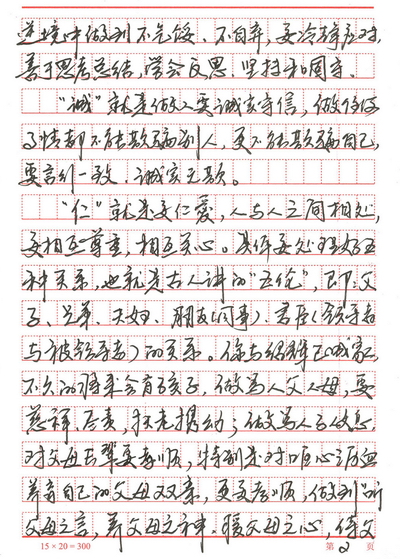 逆境中做到不气馁、不自弃,要冷静应对,
善于思考总结,学会反思、坚持和固守。
“诚”就是做人要诚实守信,做任何
事情都不能欺骗别人,更不能欺骗自己,
要言行一致、诚实无欺。
“仁”就是要仁爱,人与人之间相处,
要相互尊重,相互关心。具体要处理好五
种关系,也就是古人讲的“五伦”,即:父
子、兄弟、夫妇、朋友(同事)、君臣(领导者
与被领导者)的关系。你与 已成家,
不久的将来会有孩子,做为人父人母,要
慈祥、尽责,扶老携幼;做为人子女
对父母长辈要孝顺,特别是对
养育自己的父母双亲,更要孝顺,做到“听
父母之言,养父母之神,暖父母之心,
15×20=300
第 2 页